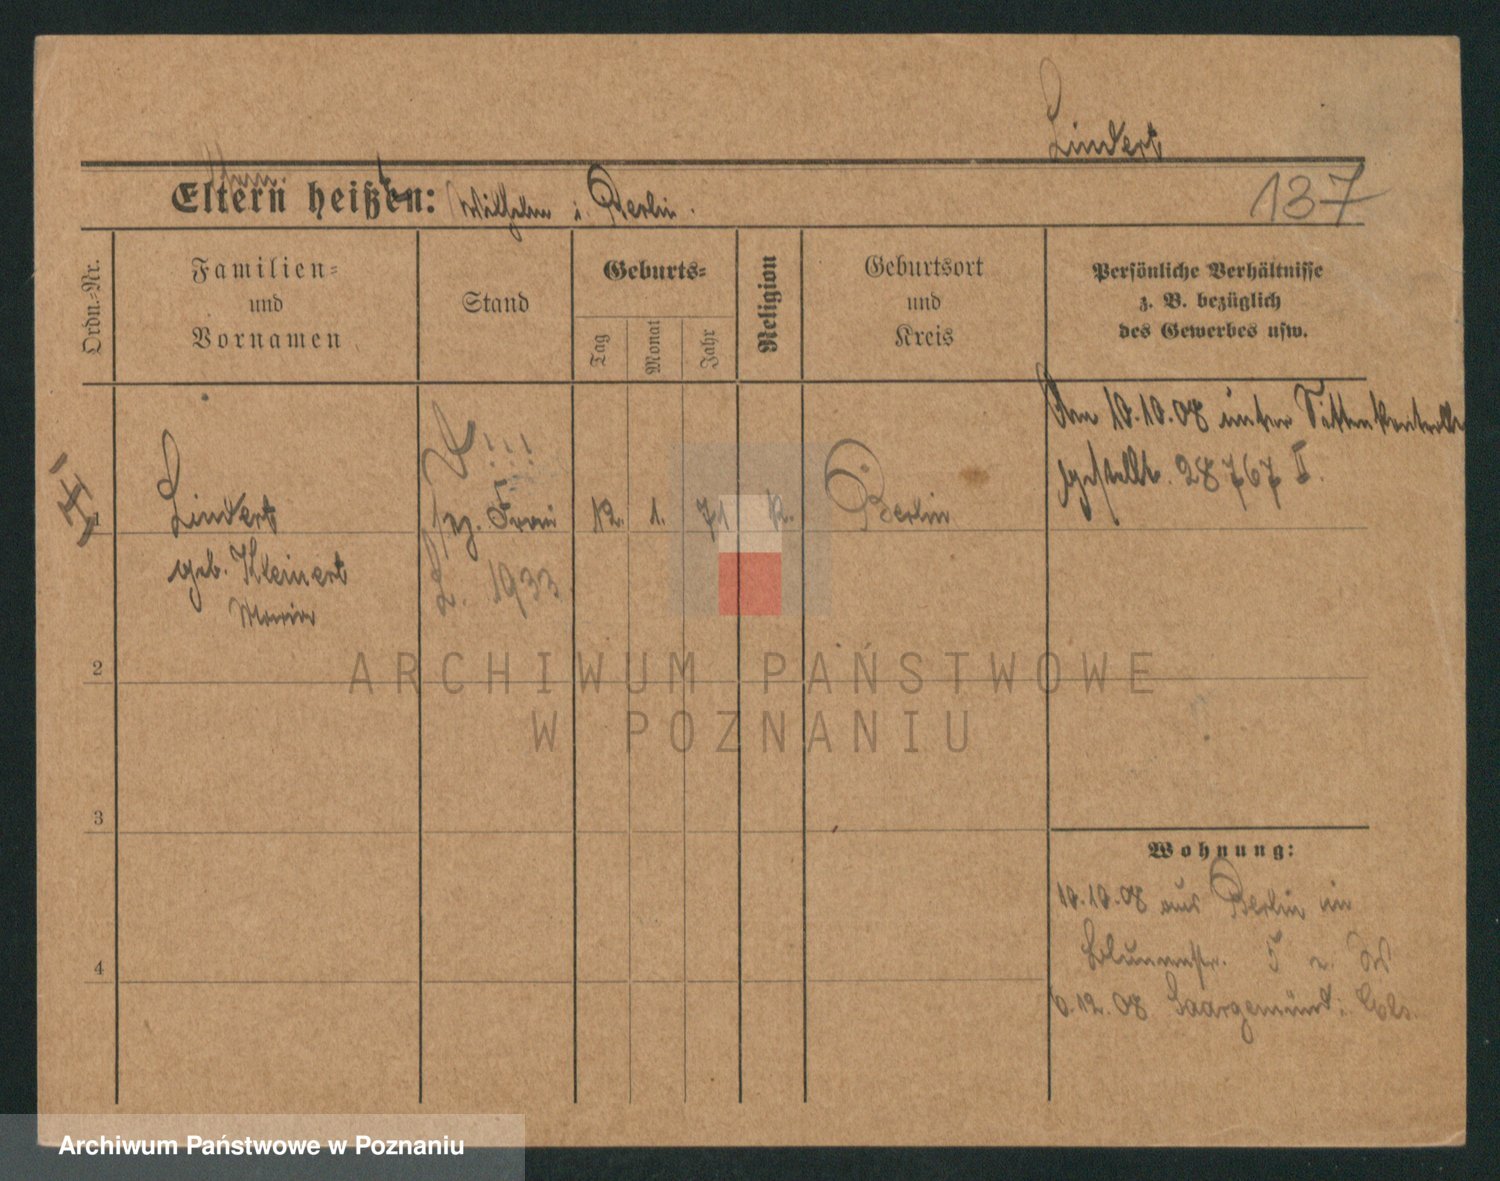 Lindert
Eltern heißen: Wilhelm i. Berlin.
137
Ordn.-Nr.
Familien-
und
Vornamen
Stand
Geburts-
Tag
Monat
Jahr
Religion
Geburtsort
und
Kreis
Persönliche Verhältnisse
z. B. bezüglich
des Gewerbes usw.
Am 10.10.08 unter Sittenkontrolle
gestellt. 28767 II.
1
Lindert
geb. Kleinert
!!!
Frau
1933
12. 1. 71
Berlin
2
3
4
Wohnung:
10.10.08 aus Berlin in
5
6.12.08 Saargemünd i. Els.
ARCHIWUM PAŃSTWOWE
W POZNANIU
Archiwum Państwowe w Poznaniu